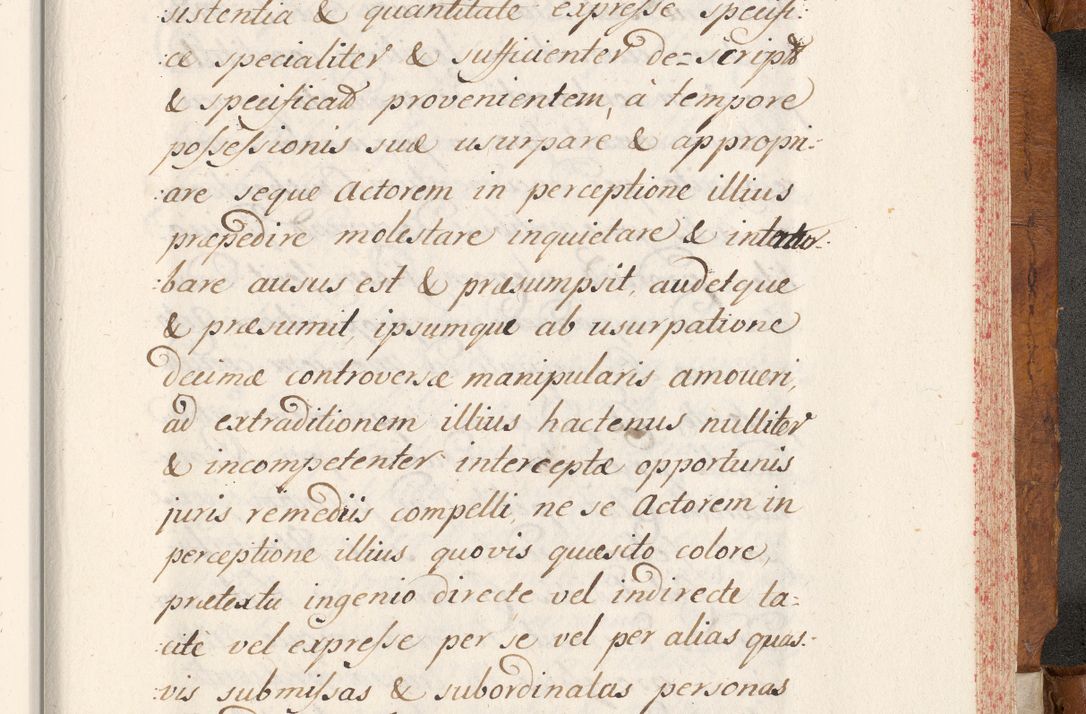 sistentia & quantitate expresse specifi:
:ce specialiter & sufficienter de=script
& specificad provenientem à tempore
possessionis suæ usurpare & appropri:
:are seque Actorem in perceptione illius
præpedire molestare inquietare & intertur:
:bare ausus est & præsumpsit, audetque
& præsumit, ipsumque ab usurpatione
decimæ controversæ manipularis amoueri,
ad extraditionem illius hactenus nulliter
& incompetenter interceptæ opportunis
juris remediis compelli, ne se Actorem in
perceptione illius quovis quæsito colore,
prætextu ingenio directe vel indirecte ta=
:cite vel expresse per se vel per alias quas:
:vis submissas & subordinatas personas